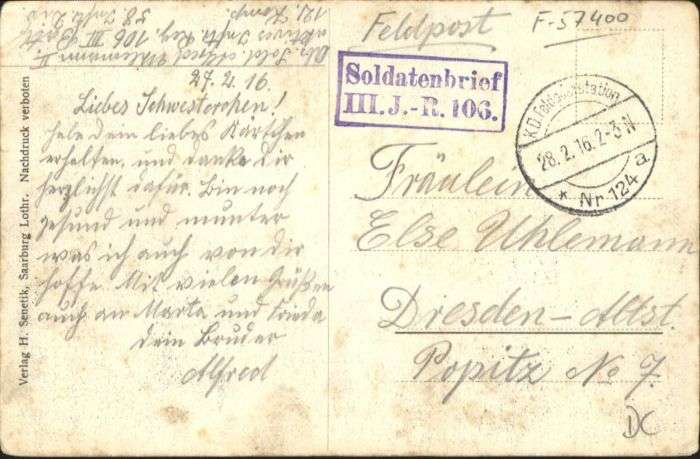 Feldpost
F-57400
Abs. Sold. Alfred Uhlemann II.
aktives Inftr. Reg. 106 III Batl.
12. Komp. 58. Inftr. Div.
Soldatenbrief
III. J.-R. 106.
K.D. Feldpoststation
28.2.16. 2-3 N
* Nr 124 a
27.2.16.
Liebes Schwesterchen!
habe dein liebes Kärtchen
erhalten, und danke dir
herzlichst dafür. Bin noch
gesund und munter
was ich auch von dir
hoffe. Mit vielen Grüßen
auch an Marta und Frieda
dein Bruder
Alfred
Fräulein
Else Uhlemann
Dresden-Altst.
Popitz No 7.
DC
Verlag H. Senetik, Saarburg Lothr. Nachdruck verboten